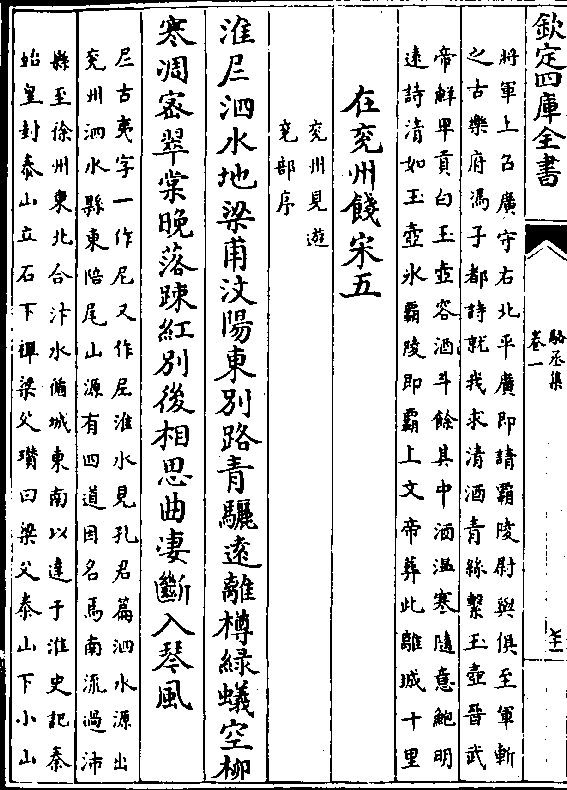 欽定四庫全書
駱丞集
卷一
將軍上召廣守右北平廣即請霸陵尉與俱至軍斬
之古樂府馮子都詩就我求清酒青絲繫玉壺晉武
帝鮮卑貢白玉壺容酒斗餘其中酒温寒隨意鮑明
逺詩清如玉壺氷霸陵即霸上文帝葬此離城十里
在兖州餞宋五
兖州見遊
兖部序
淮𡰥泗水地梁甫汶陽東别路青驪逺離樽緑蟻空柳
寒凋宻翠棠晚落踈紅别後相思曲凄斷入琴風
𡰥古夷字一作尼又作𡰥淮水見孔君篇泗水源出
兖州泗水縣東陪尾山源有四道因名焉南流過沛
縣至徐州東北合汴水循城東南以達于淮史記秦
始皇封泰山立石下禪梁父瓉曰梁父泰山下小山